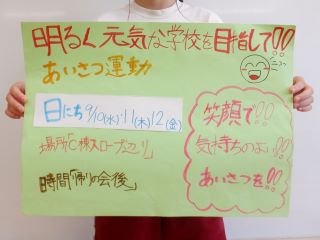 明るく元気な学校を目指して!!
ニコッ
あいさつ運動
日にち 9/10(水)・11(木)12(金)
場所「C棟スロープ辺り」
時間「帰りの会後」
笑顔で!!
気持ちのよい!!
あいさつを!!